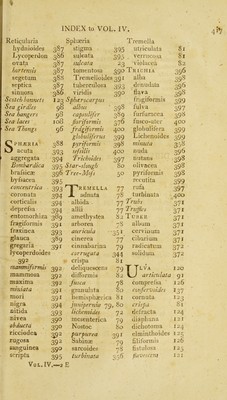 INDEX to VOL. IV.
Reticularia
hydnoides 387
hortensis 387
segetum 386
septica 387
sinuosa 386
Scotch bonnets 123
Sea girdles 96
Sea hangers 98
Sea laces 101
Sea Thongs 96
SPHÆRIA 388
acuta 393
aggregata 394
Bombardica 395
brassicæ 396
byssacea 395
concentrica 393
coronata 394
corticalis 394
depressa 394
entomorhiza 389
fragiformis 391
fraxinea 393
glauca 389
gregaria 391
lycoperdoides 392
mammiformis 392
mammosa 392
maxima 392
miniata 391
mori 391
nigra 394
nitida 393
nivea 390
obducta 390
ricciodea 392
rugosa 392
sanguinea 390
scripta 395
Sphæria
stigma 395
sulcata 393
tumentosa 390
Tremelloides 391
tuberculosa 393
viridis 390
Sphærocarpus
albus 398
capsulifer 389
fragiformis 400
globulifera 399
pyriformis 398
sessilis 400
Trichioides 397
Star-slough 80
Tree-Moss 50
TREMELLA 77
adnata 78
albida 77
allii 77
amethystea 82
arborea 78
auricula 351
cinerea 77
cinnabarina 79
corrugata 344
crispa 81
deliquescens 79
difformis 82
fusca 78
granulata 80
hemisphærica 81
juniperina 79, 80
lichenoides 72
mesenterica 79
Nostoc 80
purpurea 391
Sabinæ 79
sarcoides 78
turbinata 356
Tremella
utriculata 81
verrucosa 81
violacea 82
TRICHIA 396
alba 398
denudata 396
flava 398
fragiformis 399
fulva 397
furfuracea 398
fusco-ater 400
globulifera 399
Lichenoides 399
minuta 398
nuda 396
nutans 398
olivacea 398
pyriformis 398
recutita 399
rufa 397
turbinata 400
Trubs 371
Truffles 371
TUBER 371
album 371
cervinum 371
cibarium 371
radicatum 372
solidum 372
ULVA 120
articulata 91
compressa 126
confervoides 137
cornuta 123
crispa 81
defracta 124
diaphana 121
dichotoma 124
elminthoides 125
filiformis 126
fistulosa 125
flavescens 121
VOL. IV.—2 E